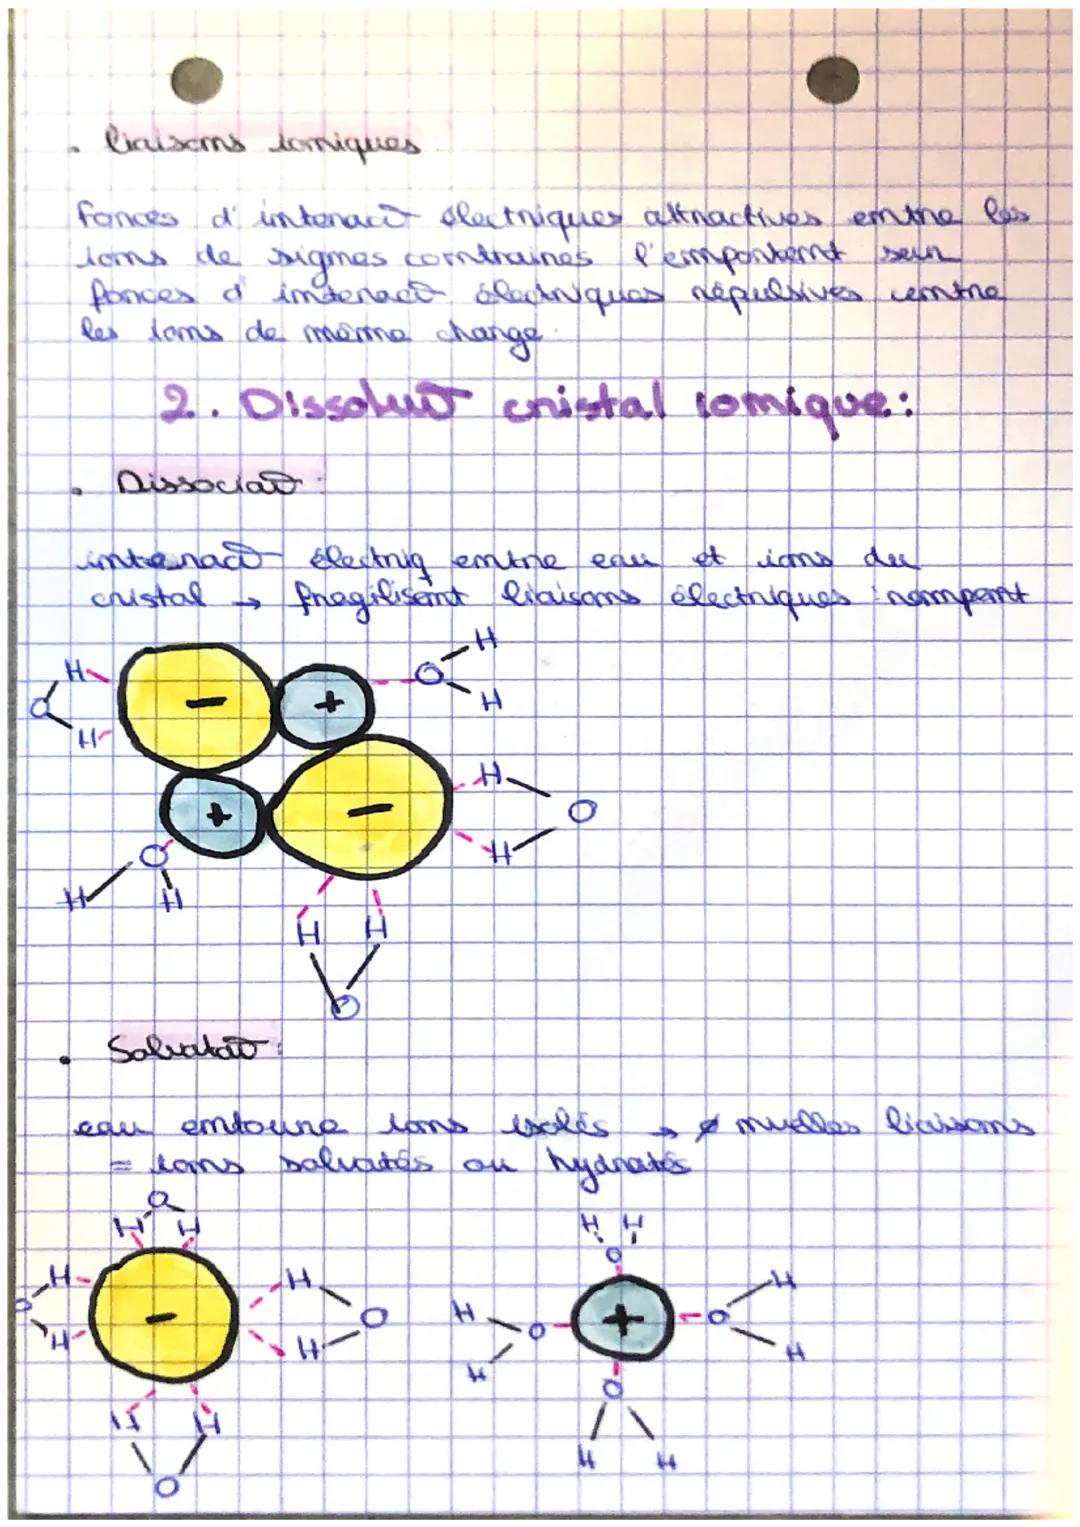 • liaisons ioniques
forces d'interact° électriques attractives entre les
ions de signes contraires l'emportent sur
forces d'interact° électriques répulsives entre
les ions de même charge.
2. Dissolut° cristal ionique:
• Dissociat°:
interact° électriq entre eau et ions du
cristal → fragilisent liaisons électriques : rompent
H H
- + O
O H
H
H
+ - O
O H
H H
H H
O
• Solvatat°:
eau entoure ions isolés → ø nvelles liaisons
= ions solvatés ou hydratés
O
H H H H
H H O H
O - O H O + O
H H H H
H H O
O H H